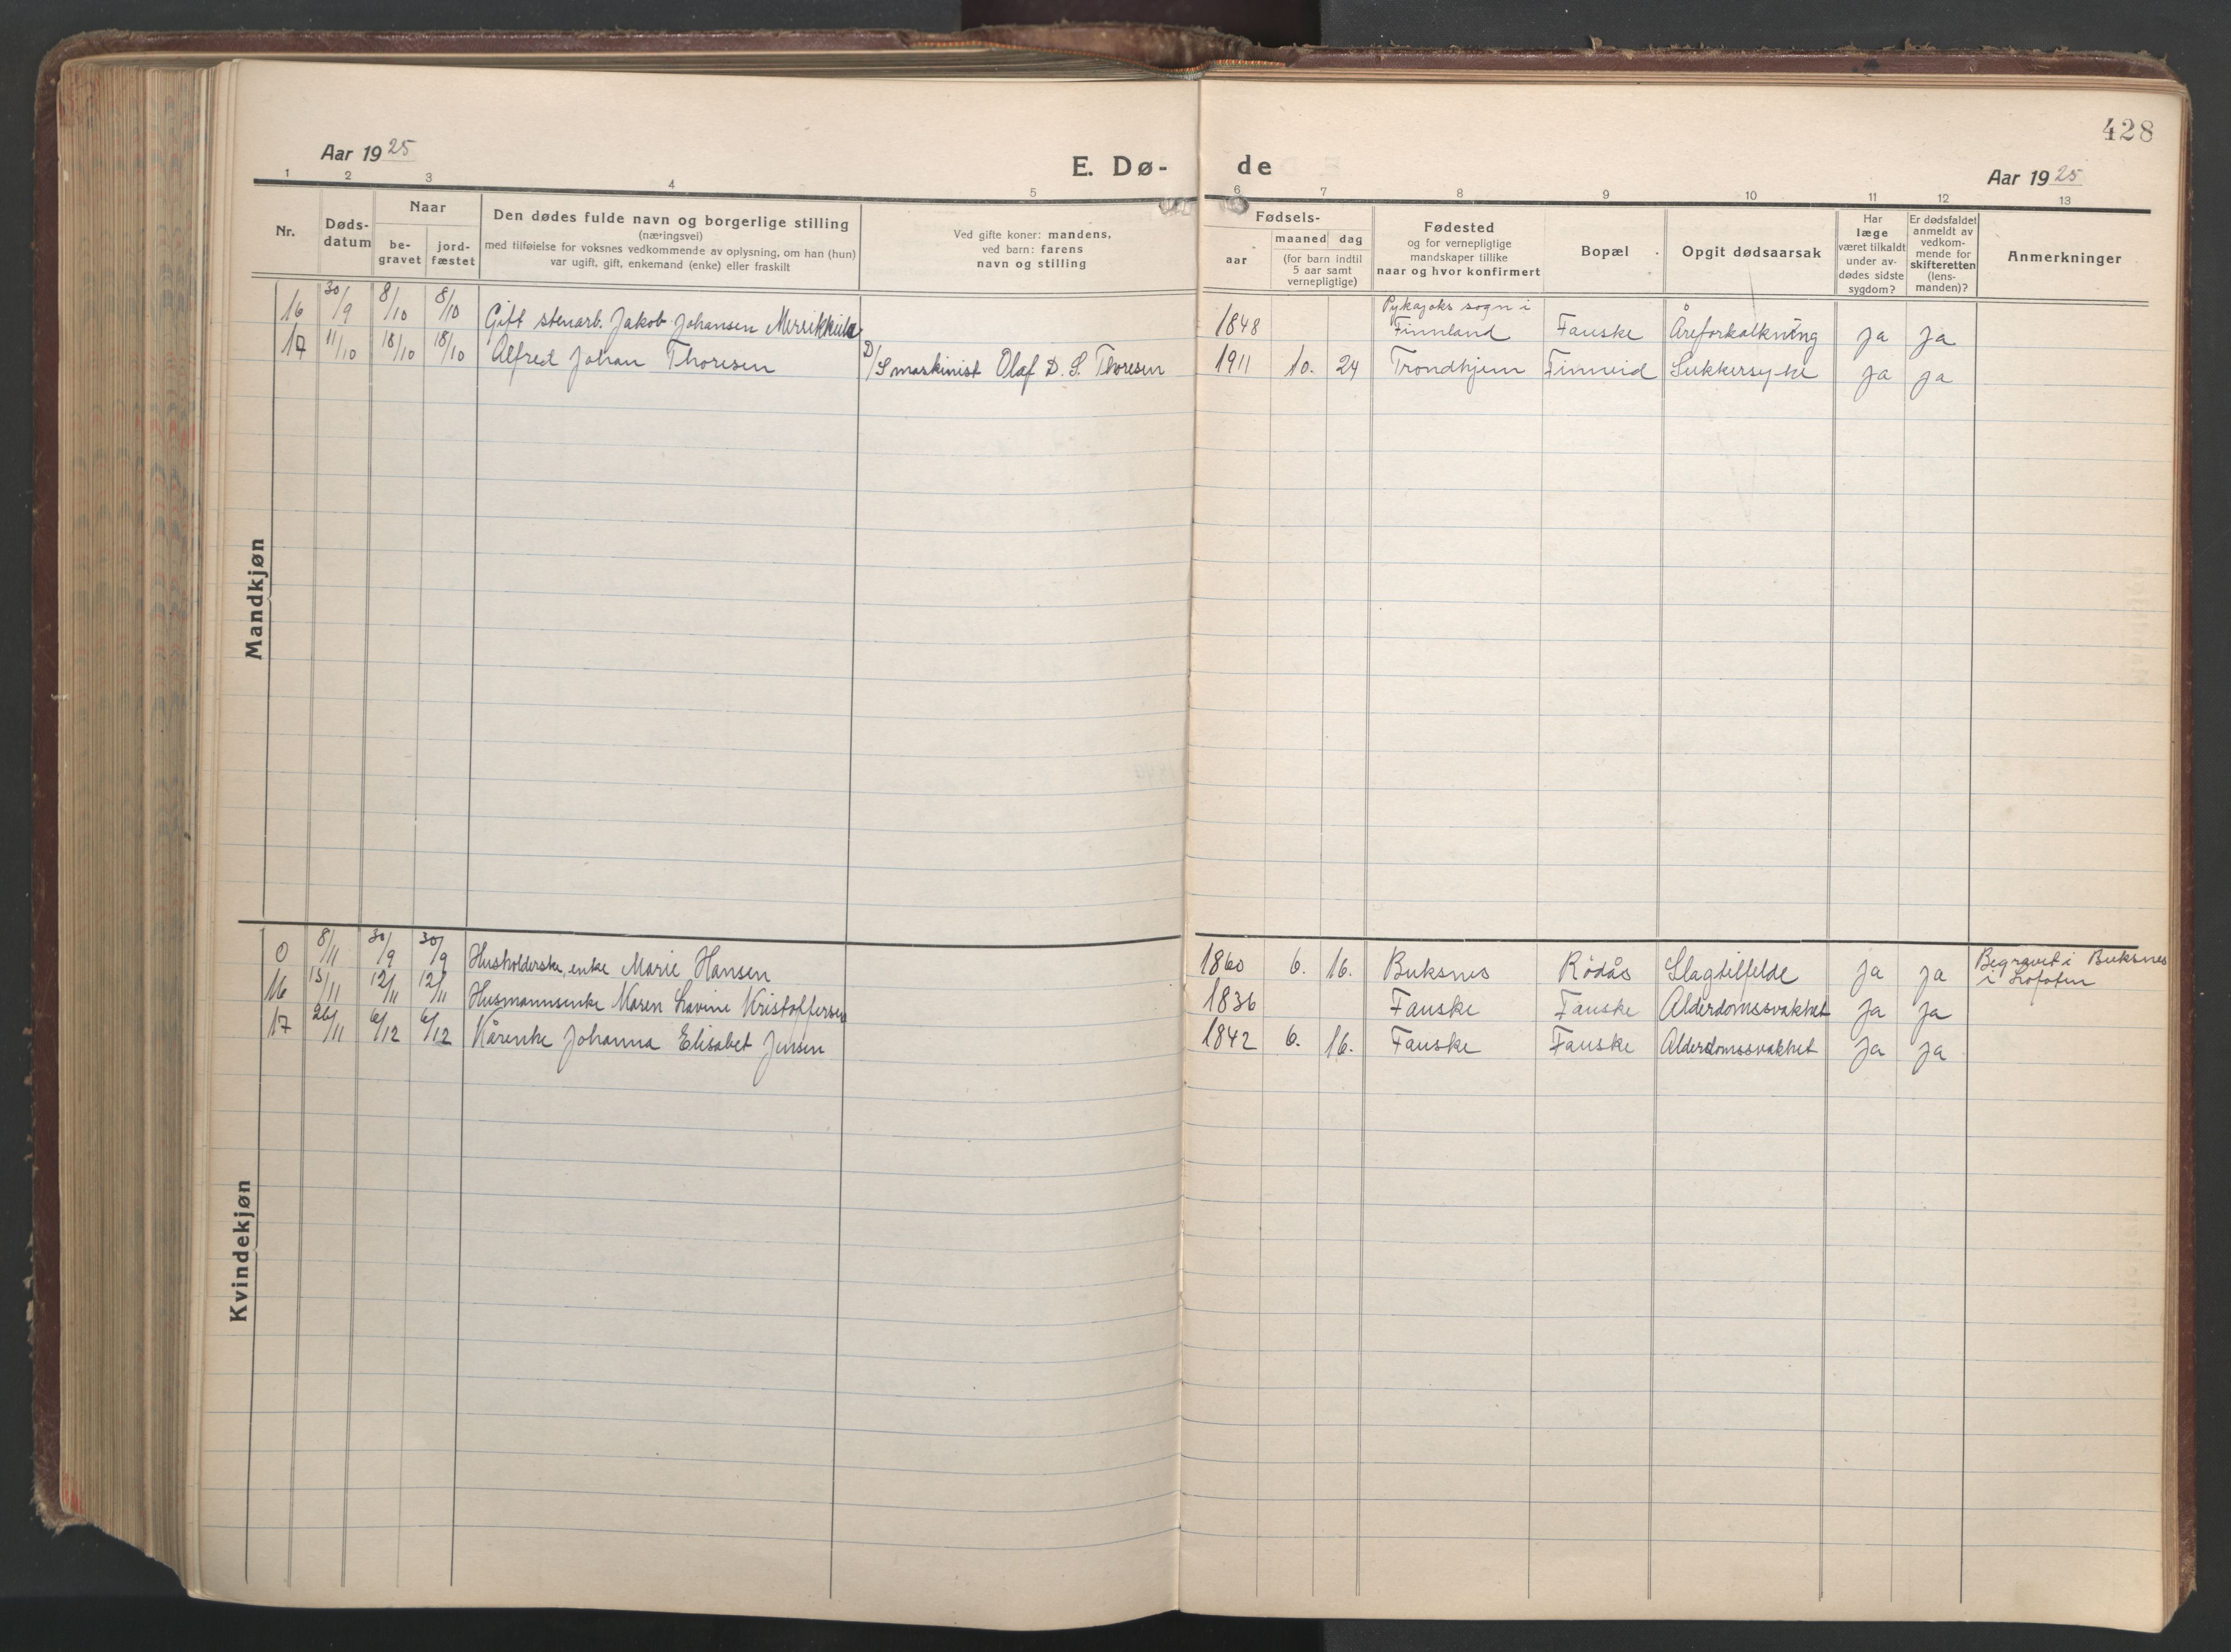 428
Aar 1925
E. Dø-
de
Aar 1925
1 2 3 4 5 6 7 8 9 10 11 12 13
Nr.
Døds-
datum
Naar
be-
gravet
jord-
fæstet
Den dødes fulde navn og borgerlige stilling
(næringsvei)
med tilføielse for voksnes vedkommende av oplysning, om han (hun)
var ugift, gift, enkemand (enke) eller fraskilt
Ved gifte koner: mandens,
ved barn: farens
navn og stilling
Fødsels-
aar
maaned dag
(for barn indtil
5 aar samt
vernepligtige)
Fødested
og for vernepligtige
mandskaper tillike
naar og hvor konfirmert
Bopæl
Opgit dødsaarsak
Har
læge
været tilkaldt
under av-
dødes sidste
sygdom?
Er dødsfaldet
anmeldt av
vedkom-
mende for
skifteretten
(lens-
manden)?
Anmerkninger
Mandkjøn
16 30/9 8/10 8/10 Gift stenarb. Jakob Johansen 1848 sogn i
Finnland Fauske Åreforkalkning ja ja
17 11/10 18/10 18/10 Alfred Johan Thoresen D/S maskinist Olaf D. S. Thoresen 1911 10. 24 Trondhjem Finneid Sukkersyke ja ja
Kvindekjøn
0 8/11 30/9 30/9 Husholderske, enke Marie Hansen 1860 6. 16. Buksnes Rödås Slagtilfelde ja ja Begravet i Buksnes
i Lofoten
16 12/11 12/11 Husmannsenke Maren Lavine Kristoffersen 1836 Fauske Fauske Alderdomssvakhet ja ja
17 26/11 6/12 6/12 Kårenke Johanna Elisabet Jensen 1842 6. 16. Fauske Fauske Alderdomssvakhet ja ja